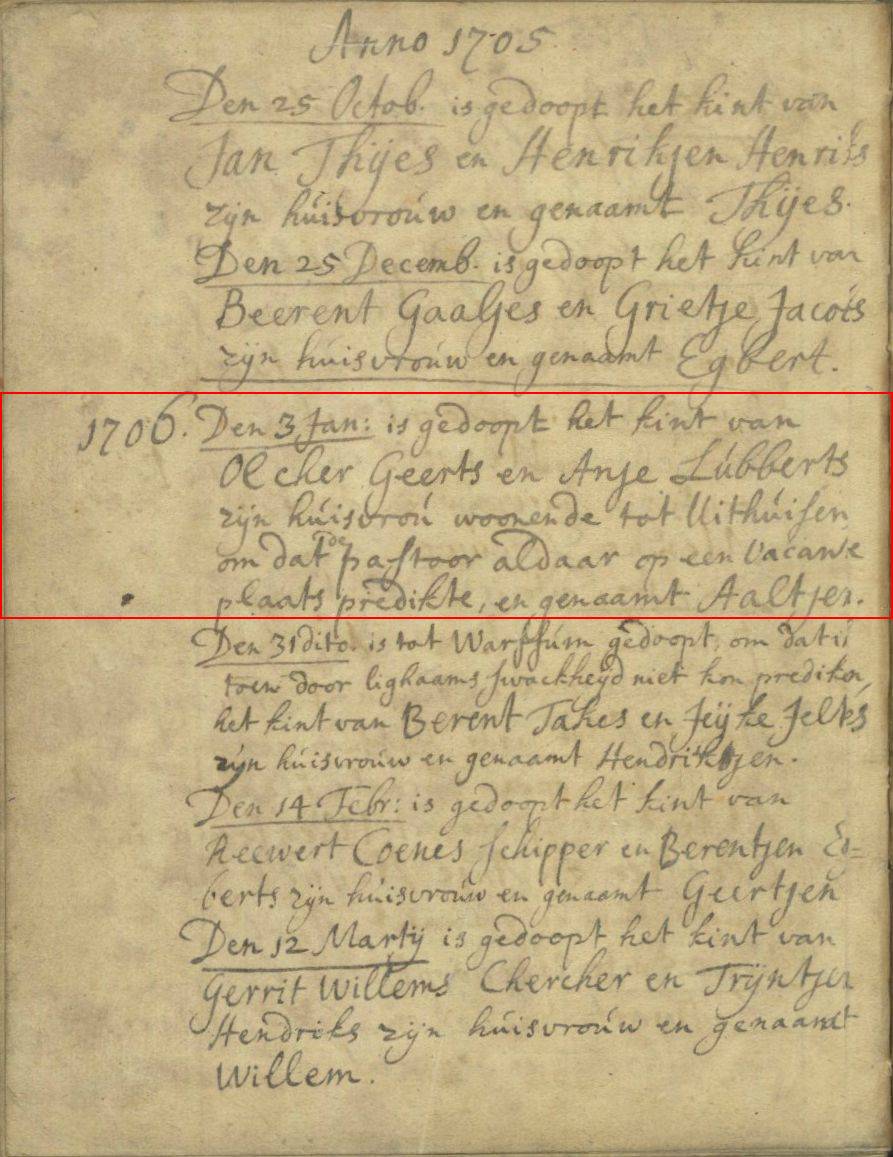 Anno 1705
Den 25 Octob. is gedoopt het kint van
Jan Thijes en Henrikjen Henriks
zijn húisvroúw en genaamt Thijes.
Den 25 Decemb. is gedoopt het kint van
Beerent Gaaljes en Grietje Jacobs
zijn húisvroúw en genaamt Egbert.
1706. Den 3 Jan: is gedoopt het kint van
Olcher Geerts en Anje Lúbberts
zijn húisvroú woonende tot Uithúisen
om dat de pastoor aldaar op een vacante
plaats predikte, en genaamt Aaltjen.
Den 31 dito. is tot Warfsúm gedoopt, om dat ik
toen door lighaams swackheijd niet kon prediken,
het kint van Berent Takes en Jeijke Jelk's
zijn húisvroúw en genaamt Hendrikjen.
Den 14 Febr: is gedoopt het kint van
Reewert Coenes schipper en Berentjen Eg=
berts zijn húisvroúw en genaamt Geertjen
Den 12 Martij is gedoopt het kint van
Gerrit Willems Chercher en Trijntjen
Hendriks zijn húisvroúw en genaamt
Willem.